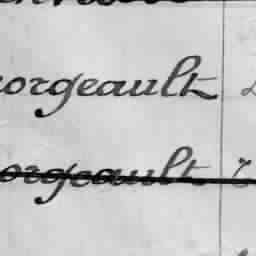 orgeault
orgeault